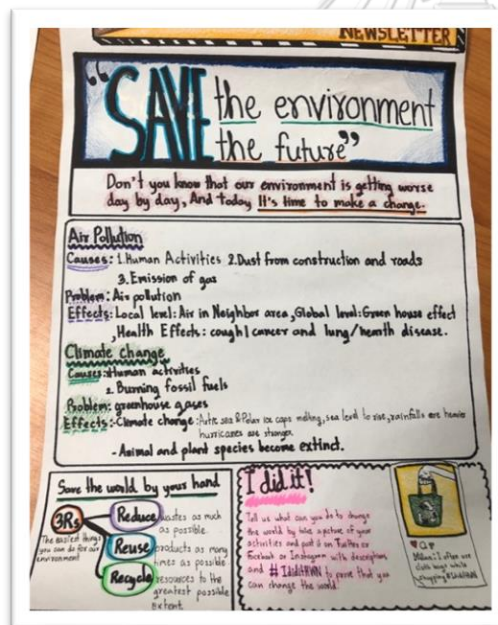 NEWSLETTER
"SAVE the environment
the future"
Don't you know that our environment is getting worse
day by day, And today It's time to make a change.
Air Pollution
Causes: 1.Human Activities 2.Dust from construction and roads
3.Emission of gas
Problem: Air pollution
Effects: Local level: Air in Neighbor area, Global level: Green house effect
, Health Effects: cough | cancer and lung/hearth disease.
Climate change
Causes: Human activities
2. Burning fossil fuels
Problem: greenhouse gases
Effects: -Climate change: sea & Polar ice caps melting, sea level to rise, rainfalls are heavier
hurricanes are stronger
- Animal and plant species become extinct.
Save the world by your hand
3Rs
The easiest things
you can do for our
environment
Reduce wastes as much
as possible.
Reuse products as many
times as possible
Recycle resources to the
greatest possible
extent.
I did it!
Tell us what can you do to change
the world by take a picture of your
activities and post it on Twitter or
Facebook or Instagram with description
and # to prove that you
can change the world.
I often use
cloth bags while
shopping